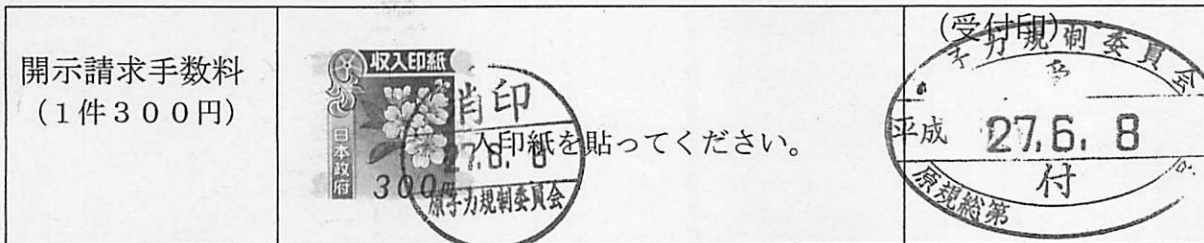 開示請求手数料
(1件300円)
収入印紙
日本政府
300円
消印
27.6.8
原子力規制委員会
入印紙を貼ってください。
(受付印)
子力規制委員会
平成 27.6.8
付
原規総第